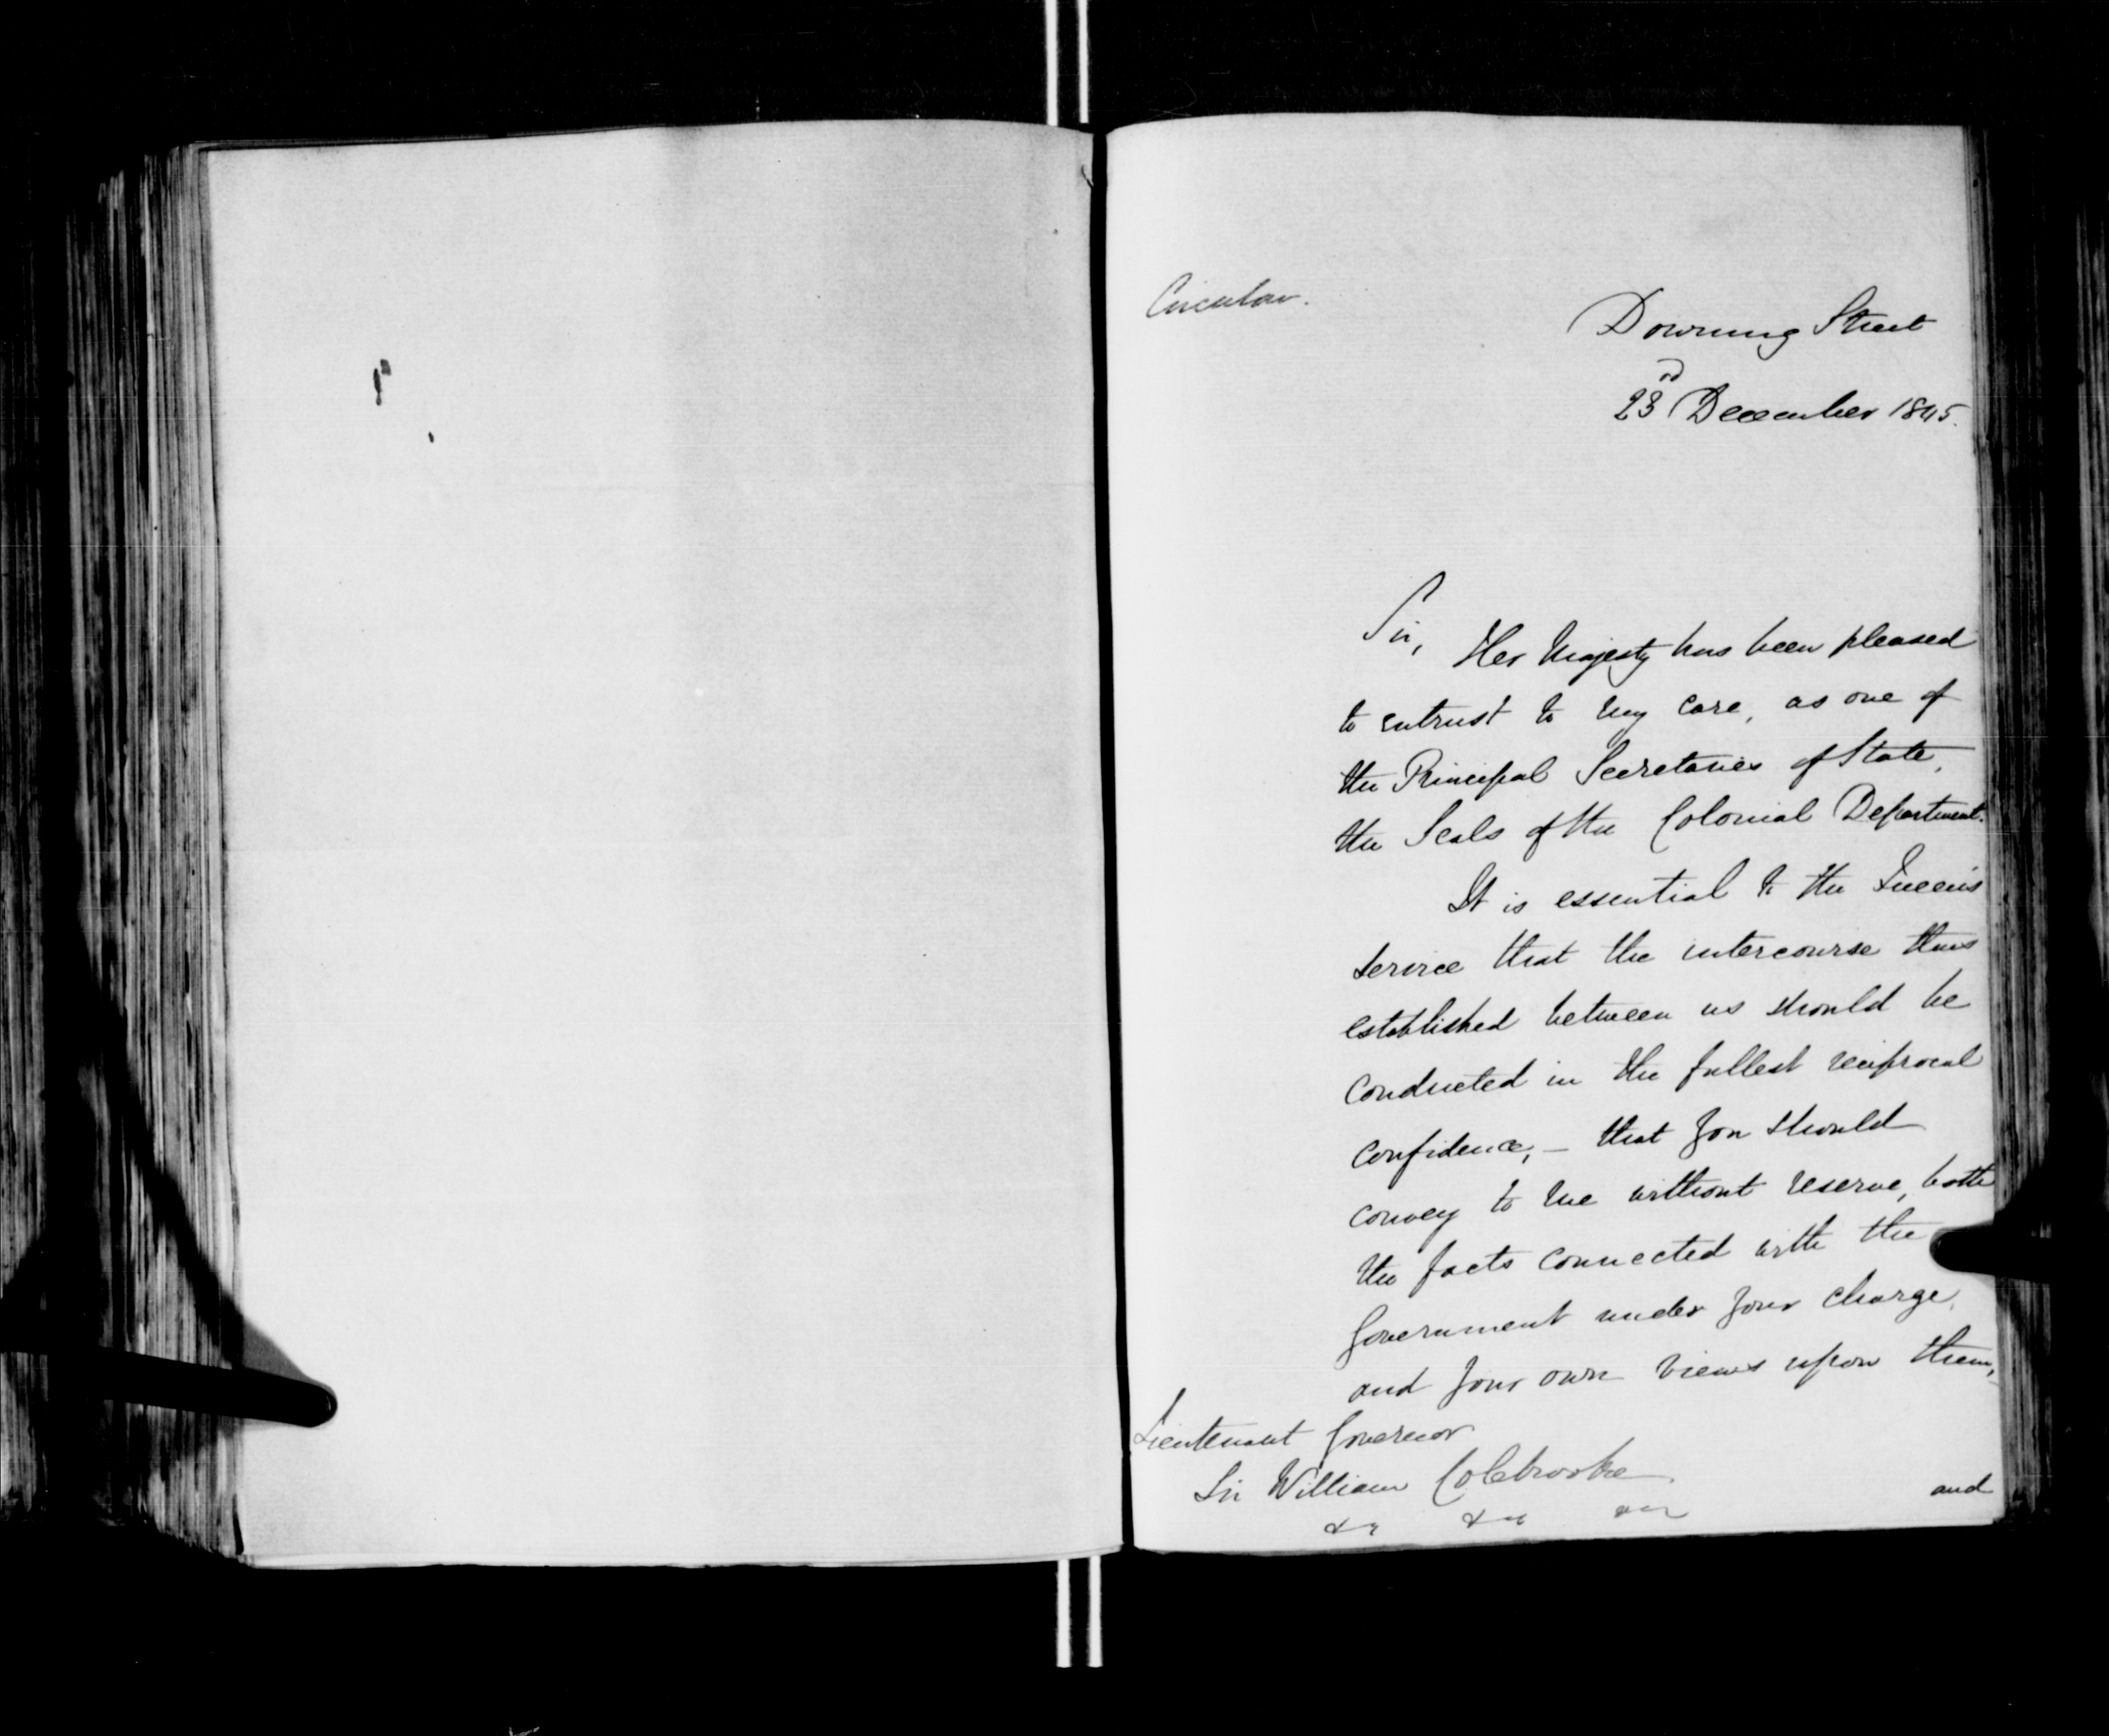 Circular.
Downing Street
23rd December 1845.
Sir,
Her Majesty has been pleased
to entrust to my care, as one of
the Principal Secretaries of State,
the Seals of the Colonial Department.
It is essential to the Queen's
service that the intercourse thus
established between us should be
conducted in the fullest reciprocal
confidence, — that you should
convey to me without reserve, both
the facts connected with the
Government under your charge,
and your own views upon them,
Lieutenant Governor
Sir William Colebrooke
&c &c &c
and